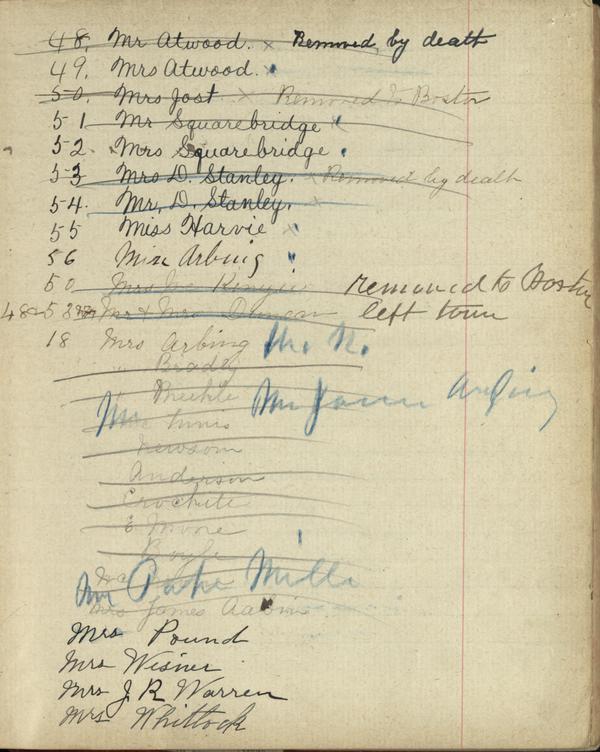 48. Mr Atwood. x Removed by death
49. Mrs Atwood.
50. Mrs Jost x Removed to Boston
51 Mr Squarebridge x
52. Mrs Squarebridge
53 Mrs D. Stanley. x Removed by death
54. Mr. D. Stanley.
55 Miss Harvie x
56 Miss Arbing
50 Mrs removed to Boston
Mr & Mrs Duncan left town
18 Mrs Arbing
" Bradly
"
Innis Mr James Arbing
Newsom
Anderson
Crochette
E Moore
Boyle
Mills
Mrs James
Mrs Pound
Mrs Wisner
Mrs J R Warren
Mrs Whittock